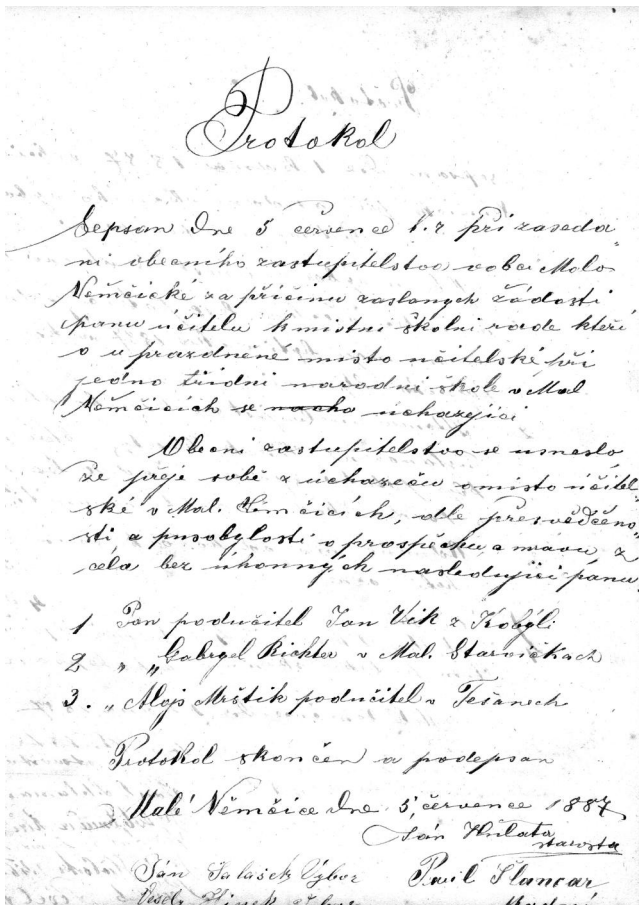 Protokol
Sepsan dne 5 července t. r. při zaseda
ni obecního zastupitelstvo v obci Malo
Němčické za příčinu zaslaných žádosti
panu účitelu k mistni školni rade kteři
o u prazdněné misto učitelské při
jedno třidni narodni škole v Mal
Němčicích se ucházejíci
Obecni zastupitelstvo se usneslo,
že přeje sobě z úchazeču o misto účitel
ské v Mal. Němčicích, dle přesvědčeno
sti a pusobylosti v prospěchu a mravu z
cela bez uhonných nasledujíci panu
1 Pan podučitel Jan Vik z Kobyli
2 „ „ Gabryel Richter v Mal. Starvičkach
3. „ Alojs Mrštik podučitel v Tešanech
Protokol skončen a podepsan
Malé Němčice dne 5 července 1887
Ján Hulata
starosta
Ján Salašek Výbor Pavil Slancar